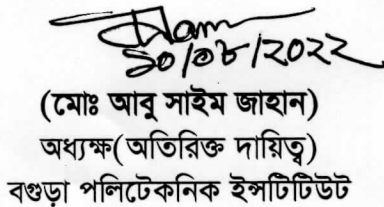 ১০/০৮/২০২২
(মোঃ আবু সাইম জাহান)
অধ্যক্ষ(অতিরিক্ত দায়িত্ব)
বগুড়া পলিটেকনিক ইন্সটিটিউট